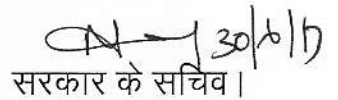 30/6/17
सरकार के सचिव |